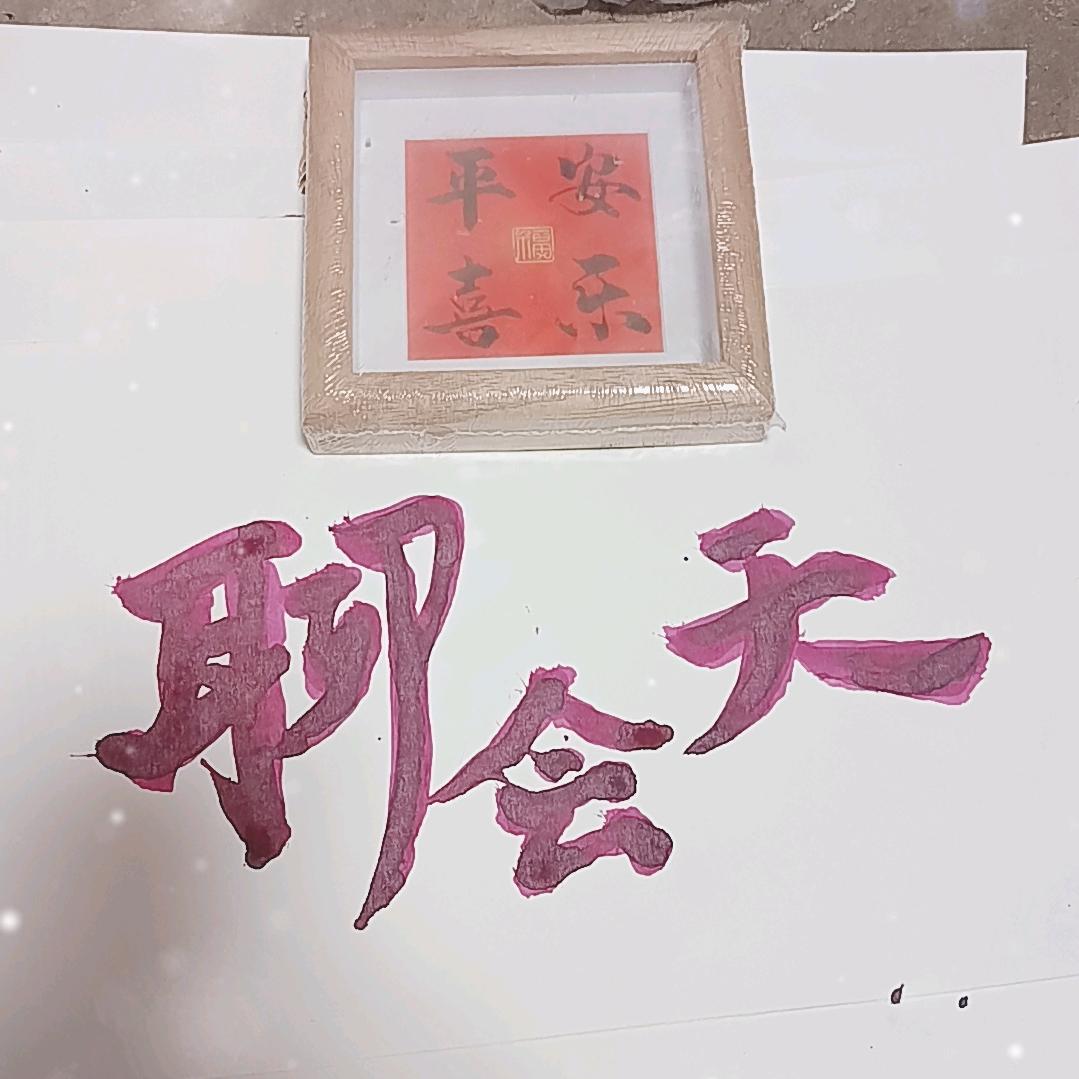 平安
福
喜乐
聊会天